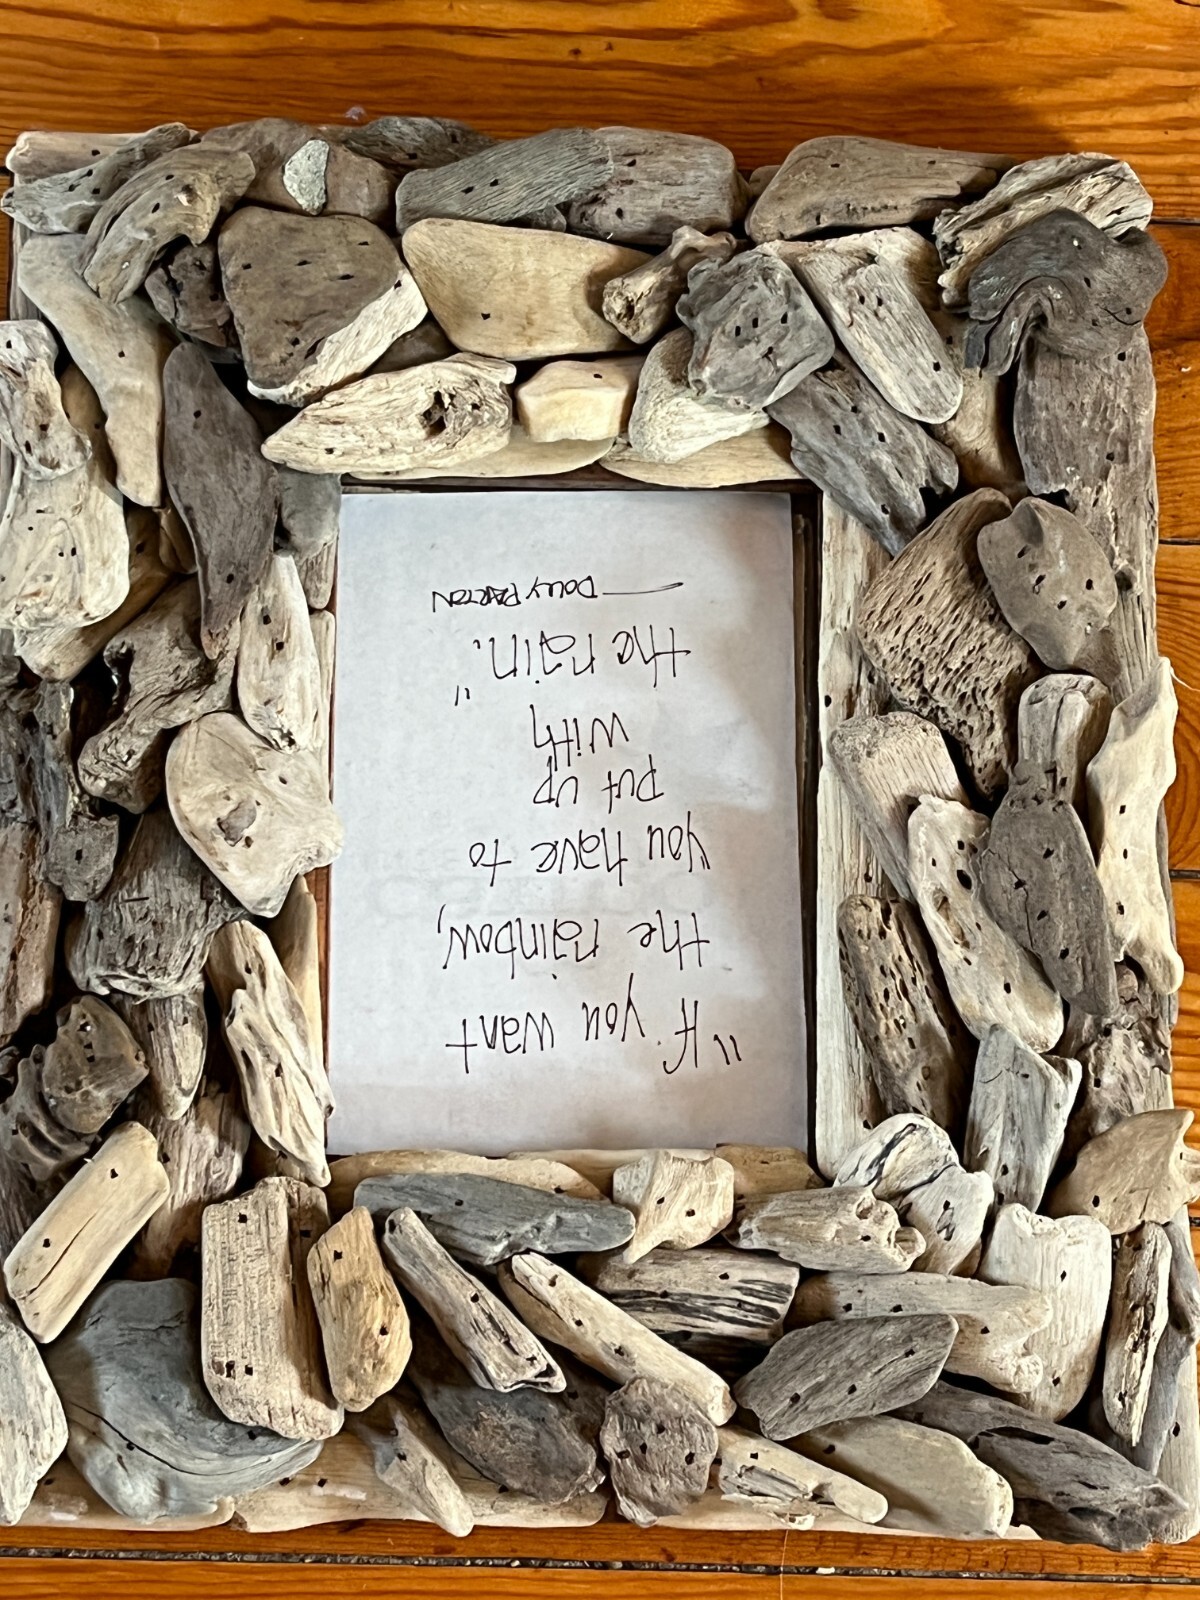 "If you want
the rainbow,
you have to
put up
with
the rain."
— DOLLY PARTON